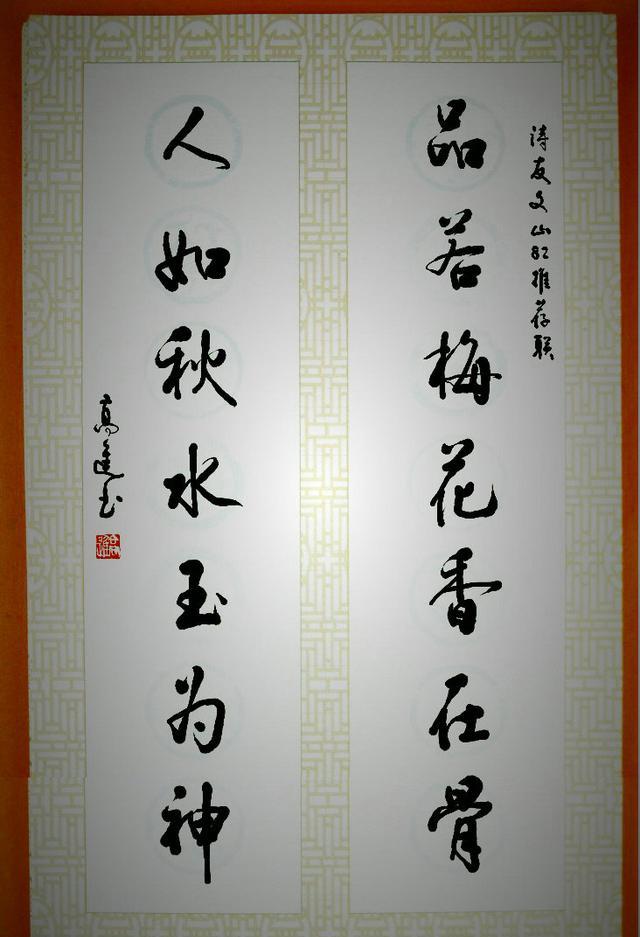 诗友文山红推荐联
品若梅花香在骨
人如秋水玉为神
高進书